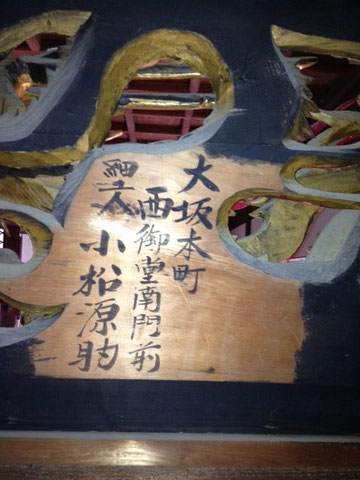 大坂本町
西御堂南門前
細工人 小松源助